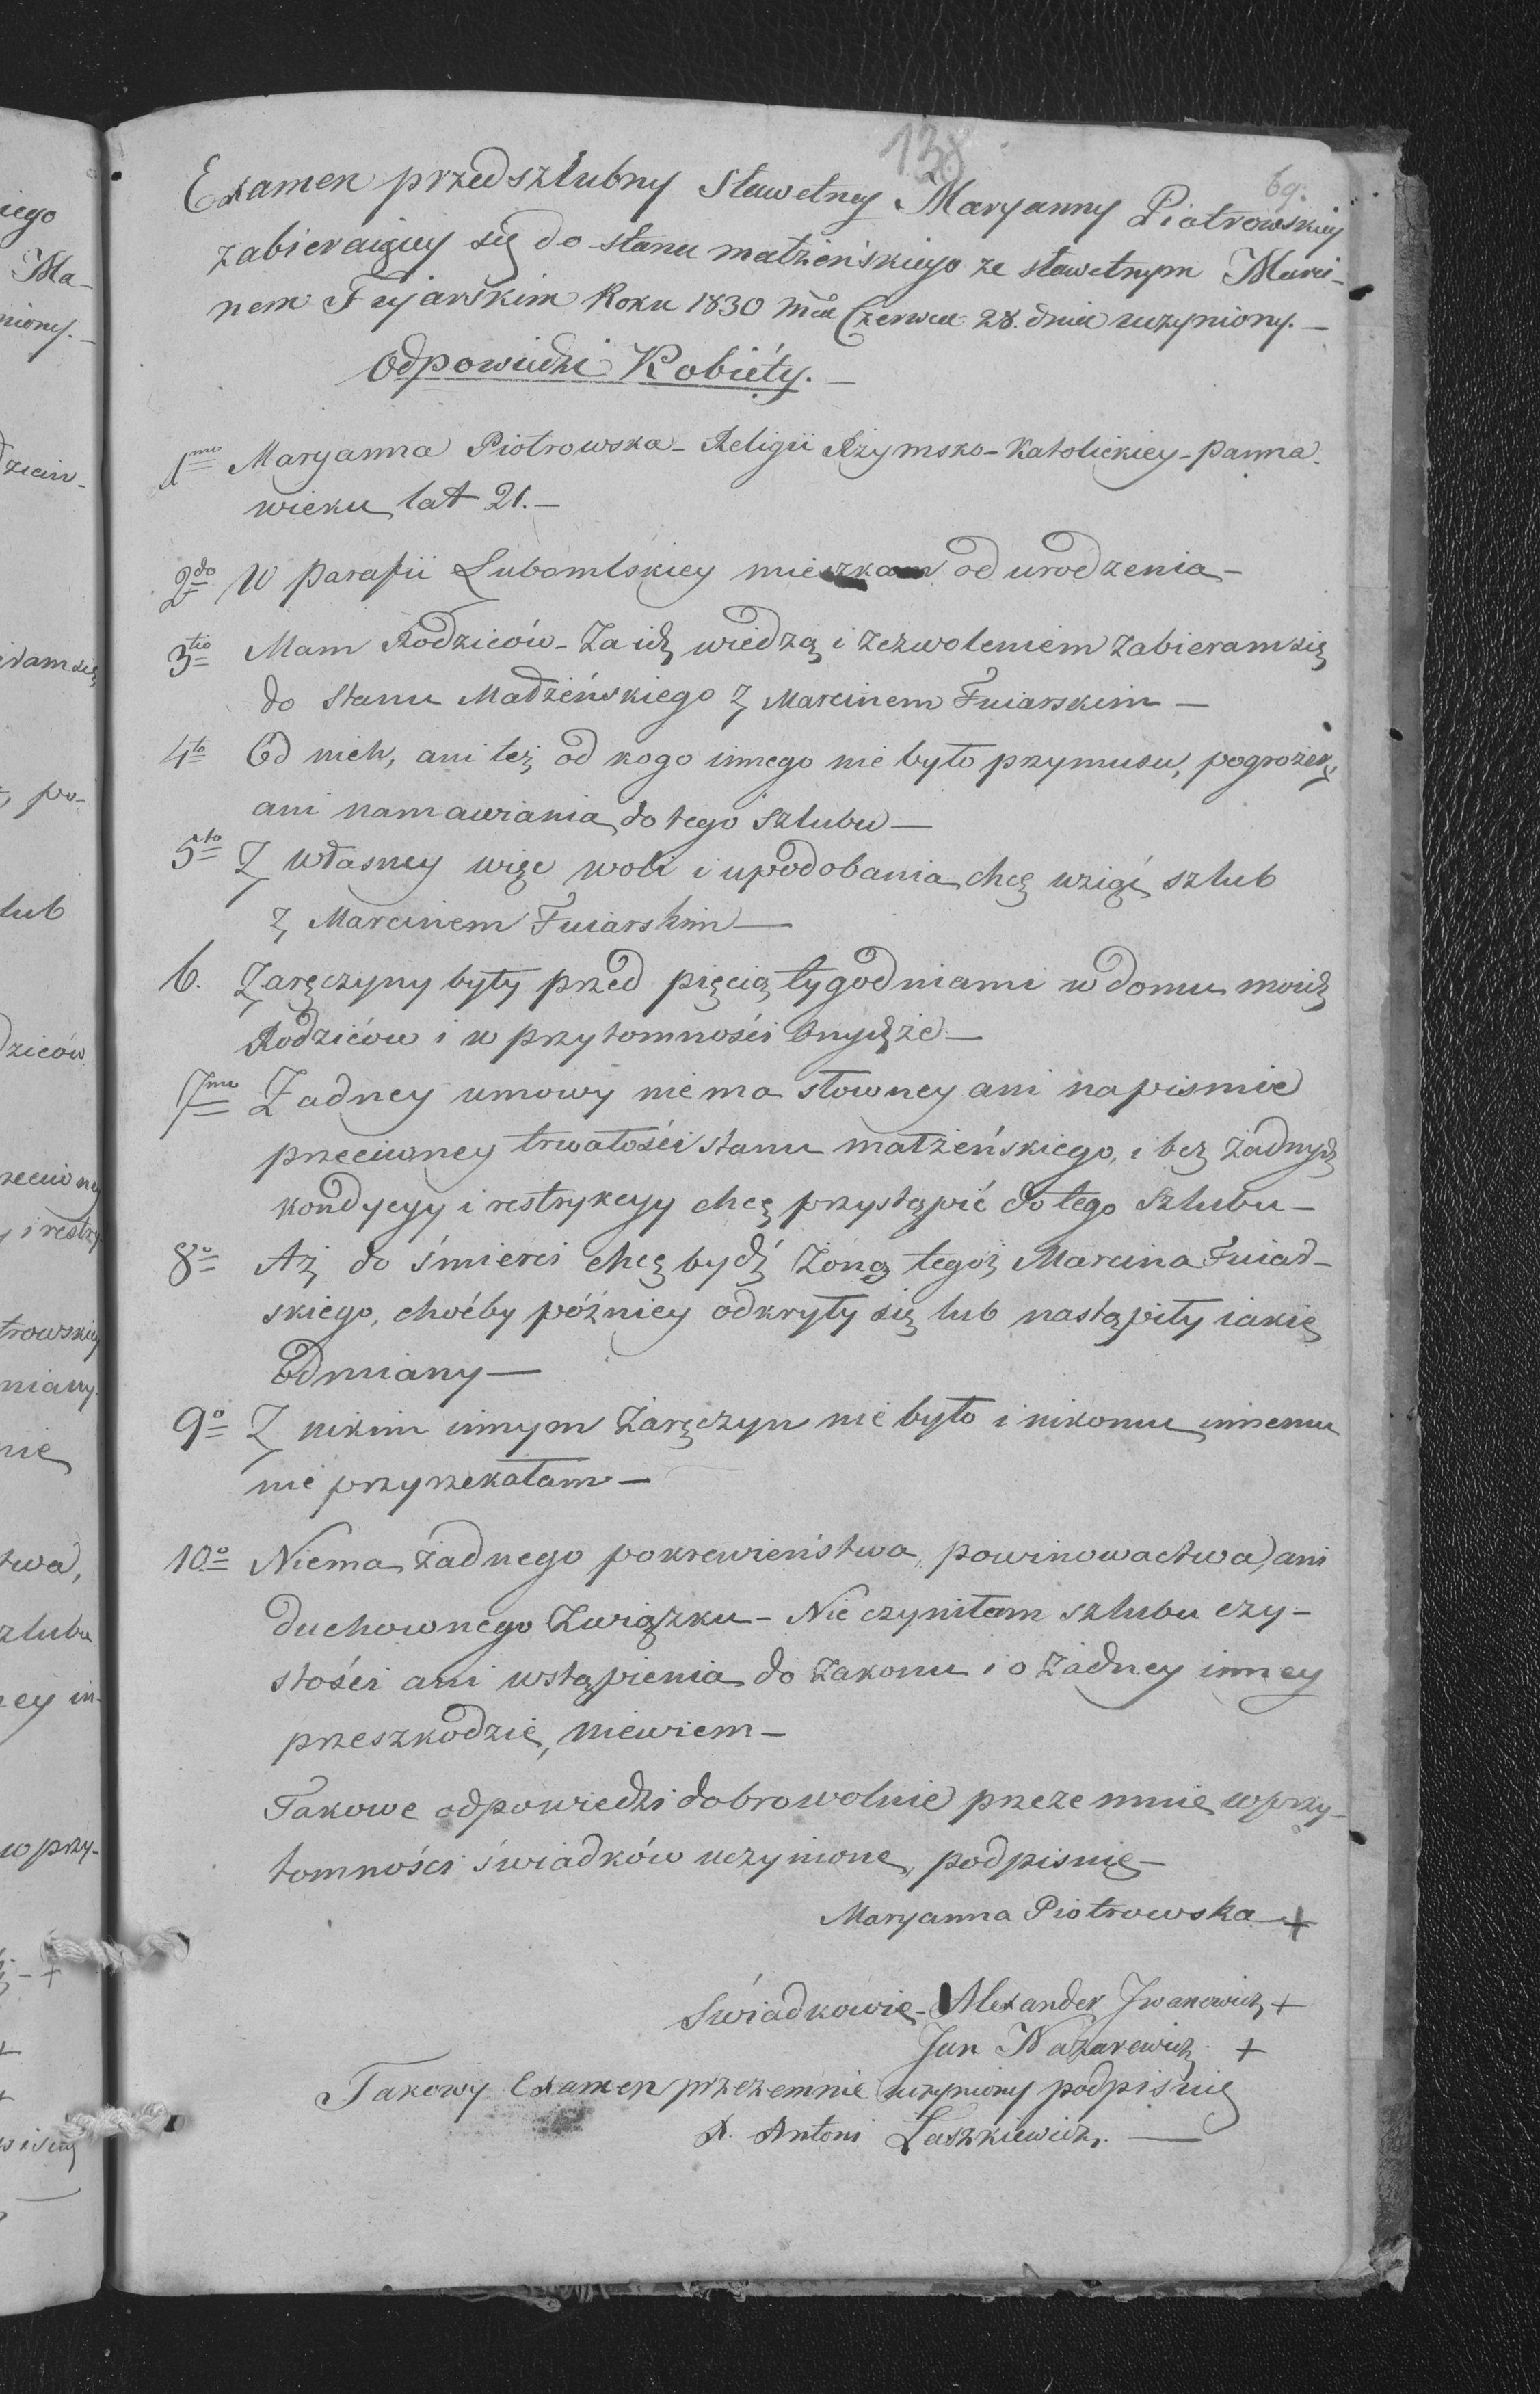 138
69.
Examen przedszlubny Sławetney Maryanny Piotrowskiey
zabieraiącey się do stanu małżeńskiego ze sławetnym Marci-
nem Fujarskim Roku 1830 Mca Czerwca 28. dnia uczyniony.—
Odpowiedzi Kobiéty.—
1mo Maryanna Piotrowska - Religii Rżymsko-Katolickiey - panna.
wieku lat 21.—
2do W parafii Lubomlskiey mieszkam od urodzenia—
3tio Mam Rodziców - Za ich wiedzą i zezwoleniem zabieram się
do stanu Madżeńskiego z Marcinem Fuiarskim—
4to Od nich, ani też od kogo innego nie było przymusu, pogrożek,
ani namawiania do tego szlubu—
5to Z własney więc woli i upodobania chcę wziąć szlub
z Marcinem Fuiarskim—
6. Zaręczyny były przed pięcią tygodniami w domu moich
Rodziców i w przytomności onychże—
7mo Żadney umowy niema słowney ani napismie
przeciwney trwałości stanu małżeńskiego, i bez żadnych
kondycyy i restrykcyy chcę przystąpić do tego Szlubu—
8o Aż do śmierci chcę bydź żoną tegoż Marcina Fuiar-
skiego, choćby późniey odkryły się lub nastąpiły iakie
odmiany—
9o Z nikim innym zaręczyn nie było i nikomu innemu
nie przyrzekałam—
10o Niema żadnego pokrewieństwa, powinowactwa, ani
duchownego związku - Nie czyniłam szlubu czy-
stości ani wstąpienia do zakonu i o żadney inney
przeszkodzie, niewiem—
Takowe odpowiedzi dobrowolnie przezemnie w przy-
tomności świadków uczynione, podpisuię—
Maryanna Piotrowska +
Świadkowie - Alexander Iwanowicz +
Jan Nazarewicz +
Takowy Examen przezemnie uczyniony podpisuię
X. Antoni Laszkiewicz.—